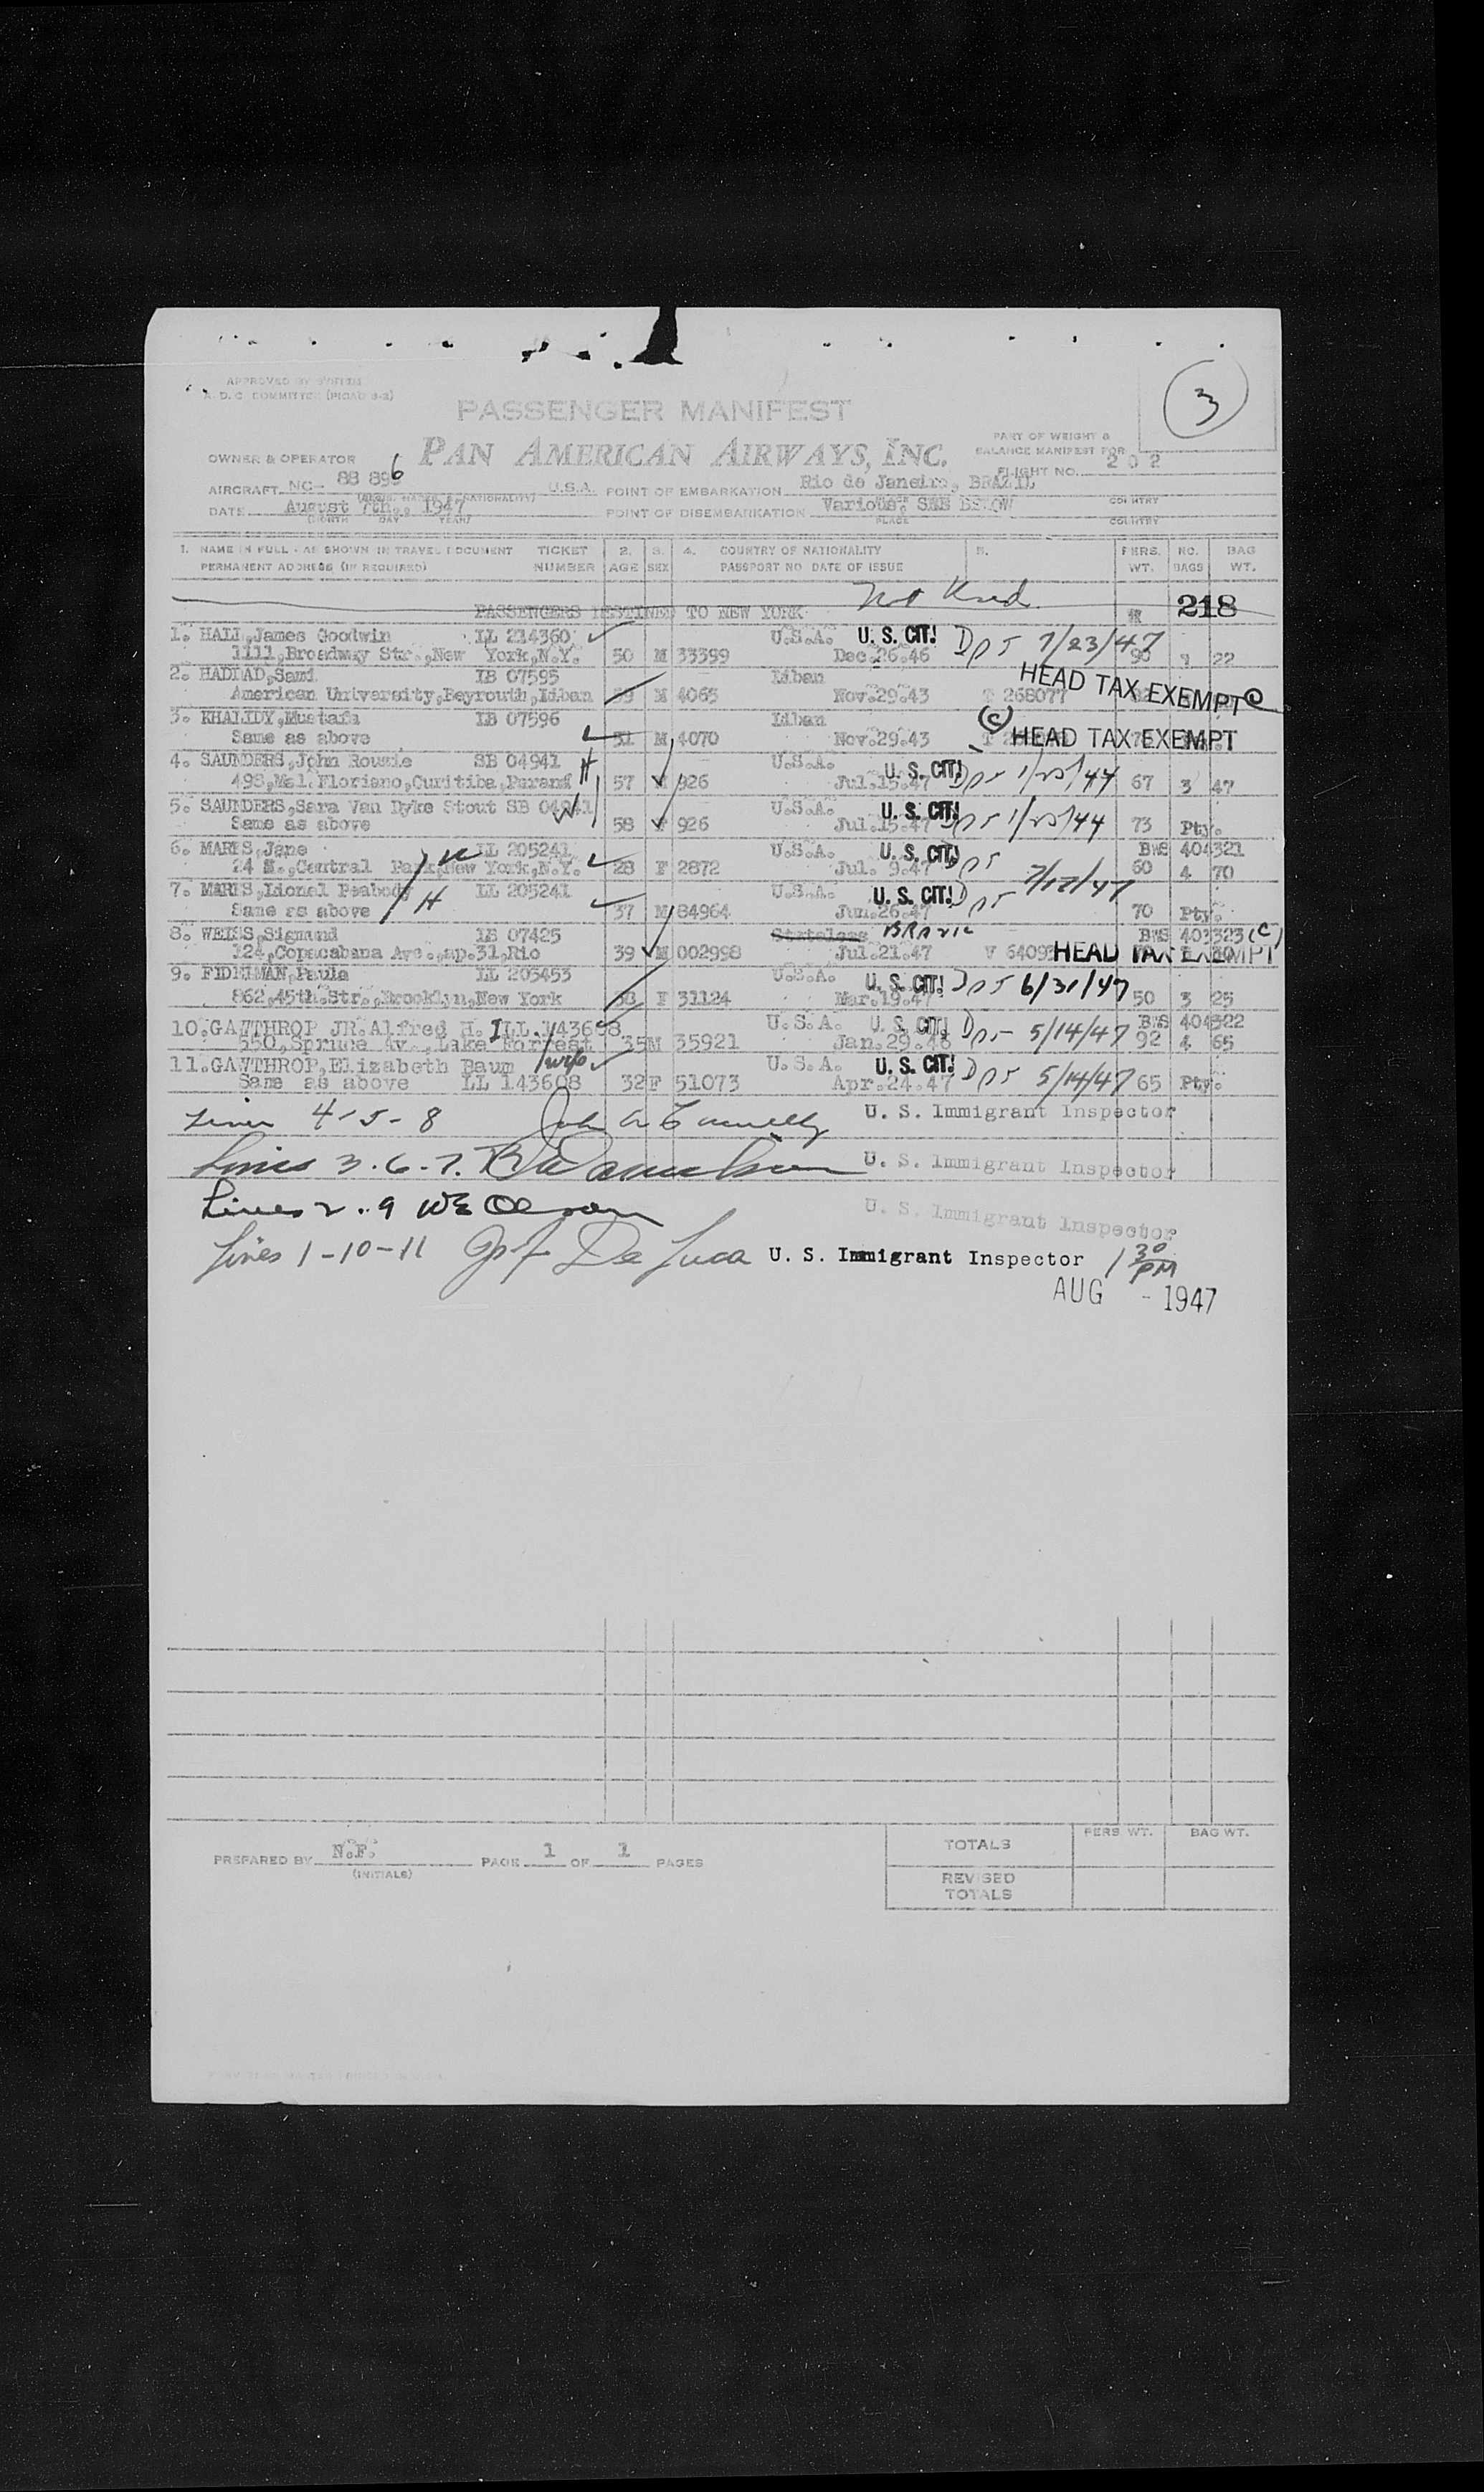 (3)
APPROVED BY
A.D.C. COMMITTEE
PASSENGER MANIFEST
PAN AMERICAN AIRWAYS, INC.
PART OF WEIGHT &
BALANCE MANIFEST FOR
FLIGHT NO. 202
OWNER & OPERATOR
AIRCRAFT NC- 88 896 U.S.A. POINT OF EMBARKATION Rio de Janeiro, BRAZIL
DATE August 7th., 1947 POINT OF DISEMBARKATION Various: SEE BELOW
(MONTH DAY YEAR) PLACE COUNTRY
1. NAME IN FULL - AS SHOWN IN TRAVEL DOCUMENT TICKET 2. 3. 4. COUNTRY OF NATIONALITY 5. PERS. NO. BAG
PERMANENT ADDRESS (IF REQUIRED) NUMBER AGE SEX PASSPORT NO DATE OF ISSUE WT. BAGS WT.
PASSENGERS DESTINED TO NEW YORK 218
1. HALL,James Goodwin LL 214360 U.S.A. U. S. CIT!
1111,Broadway Str.,New York,N.Y. 50 M 33399 Dec.26.46 7/23/47 22
2. HADDAD,Sami IB 07595 Liban
American University,Beyrouth,Liban 59 M 4065 Nov.29.43 T 268077 HEAD TAX EXEMPT
3. KHALIDY,Mustafa IB 07596 Liban
Same as above M 4070 Nov.29.43 (C) HEAD TAX EXEMPT
4. SAUNDERS,John Rousie SB 04941 H U.S.A. U. S. CIT!
498,Mal.Floriano,Curitiba,Parana 57 926 Jul.15.47 67 3 47
5. SAUNDERS,Sara Van Dyke Stout SB 04941 W U.S.A. U. S. CIT!
Same as above 58 F 926 Jul.15.47 73 Pty.
6. MARIS,Jane W LL 205241 U.S.A. U. S. CIT! BWS 404321
24 W.,Central Park,New York,N.Y. 28 F 2872 Jul. 9.47 60 4 70
7. MARIS,Lionel Peabody H LL 205241 U.S.A. U. S. CIT! 7/17/47
Same as above 37 M 84964 Jun.26.47 70 Pty.
8. WEISS,Sigmund IB 07425 Stateless BRAZIL BWS 403323 (C)
124,Copacabana Ave.,ap.31,Rio 39 M 002998 Jul.21.47 HEAD TAX EXEMPT
9. FIDELMAN,Paula LL 203453 U.S.A. U. S. CIT!
862,45th.Str.,Brooklyn,New York 38 F 31124 Mar.19.47 6/31/47 50 3 25
10.GAWTHROP JR.Alfred H. LL 143608 U.S.A. U. S. CIT! 5/14/47 BWS 404322
550,Spruce Av.,Lake Forrest 35M 35921 Jan.29.46 92 4 65
11.GAWTHROP,Elizabeth Baum wife U.S.A. U. S. CIT! 5/14/47
Same as above LL 143608 32F 51073 Apr.24.47 65 Pty.
Lines 4-5-8 U. S. Immigrant Inspector
Lines 3.6.7. U. S. Immigrant Inspector
Lines 2..9 WE Olson U. S. Immigrant Inspector
Lines 1-10-11 De Luca U. S. Immigrant Inspector 1 30 PM
AUG - 1947
PREPARED BY N.F. PAGE 1 OF 1 PAGES
(INITIALS)
PERS WT. BAG WT.
TOTALS
REVISED
TOTALS